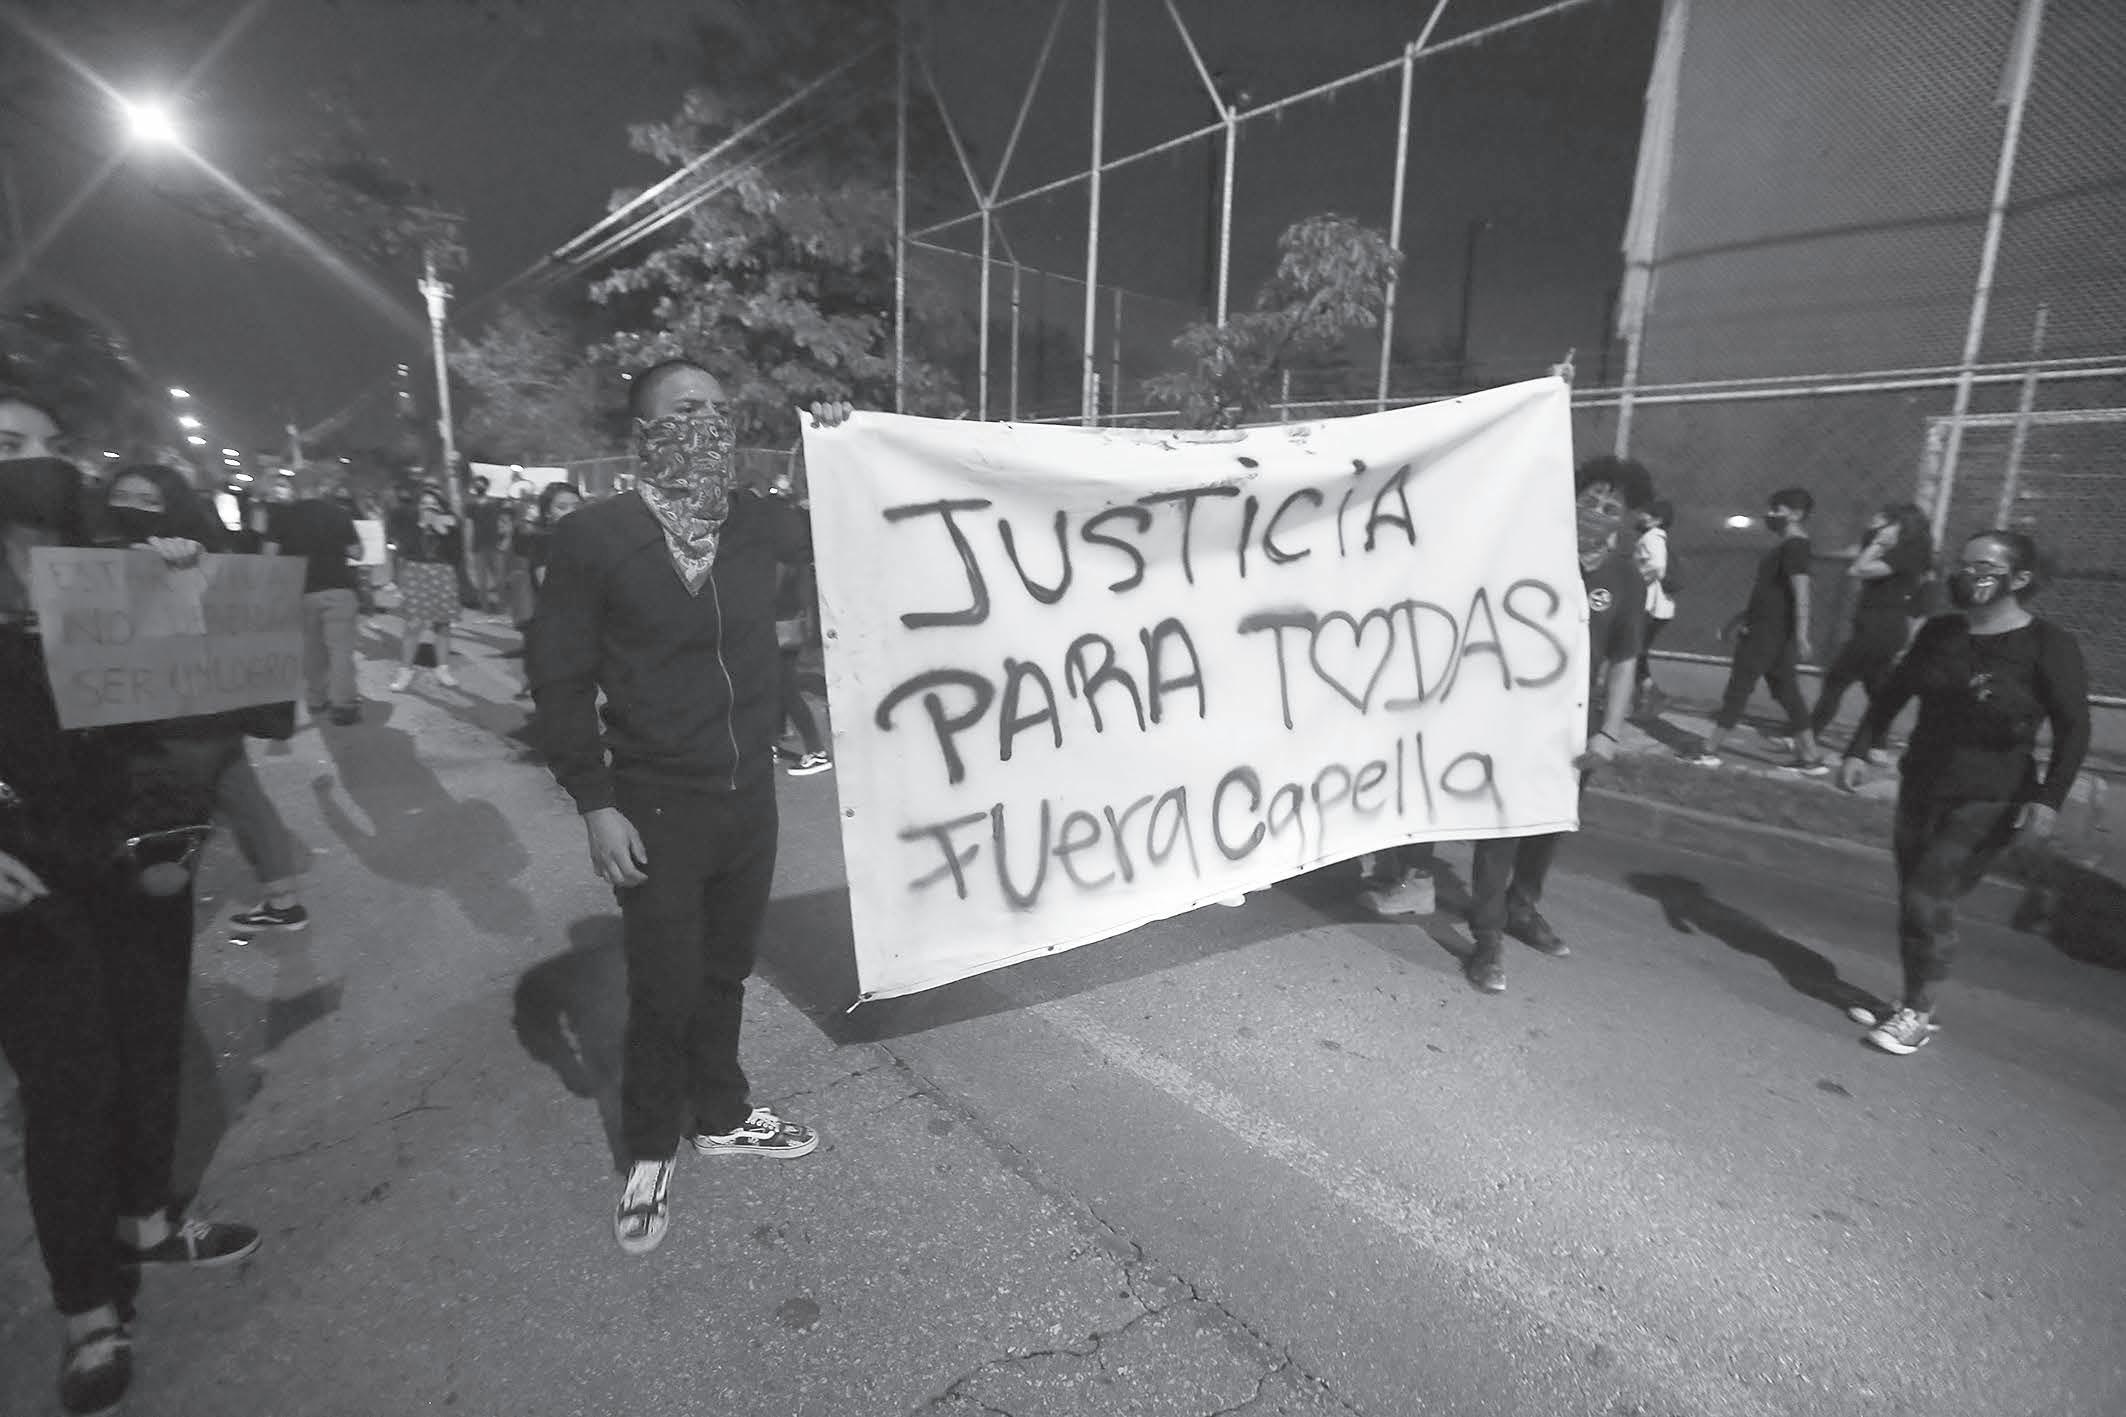 JUSTICIA
PARA TODAS
FUera Capella
EST
NO
SER UN LUJO